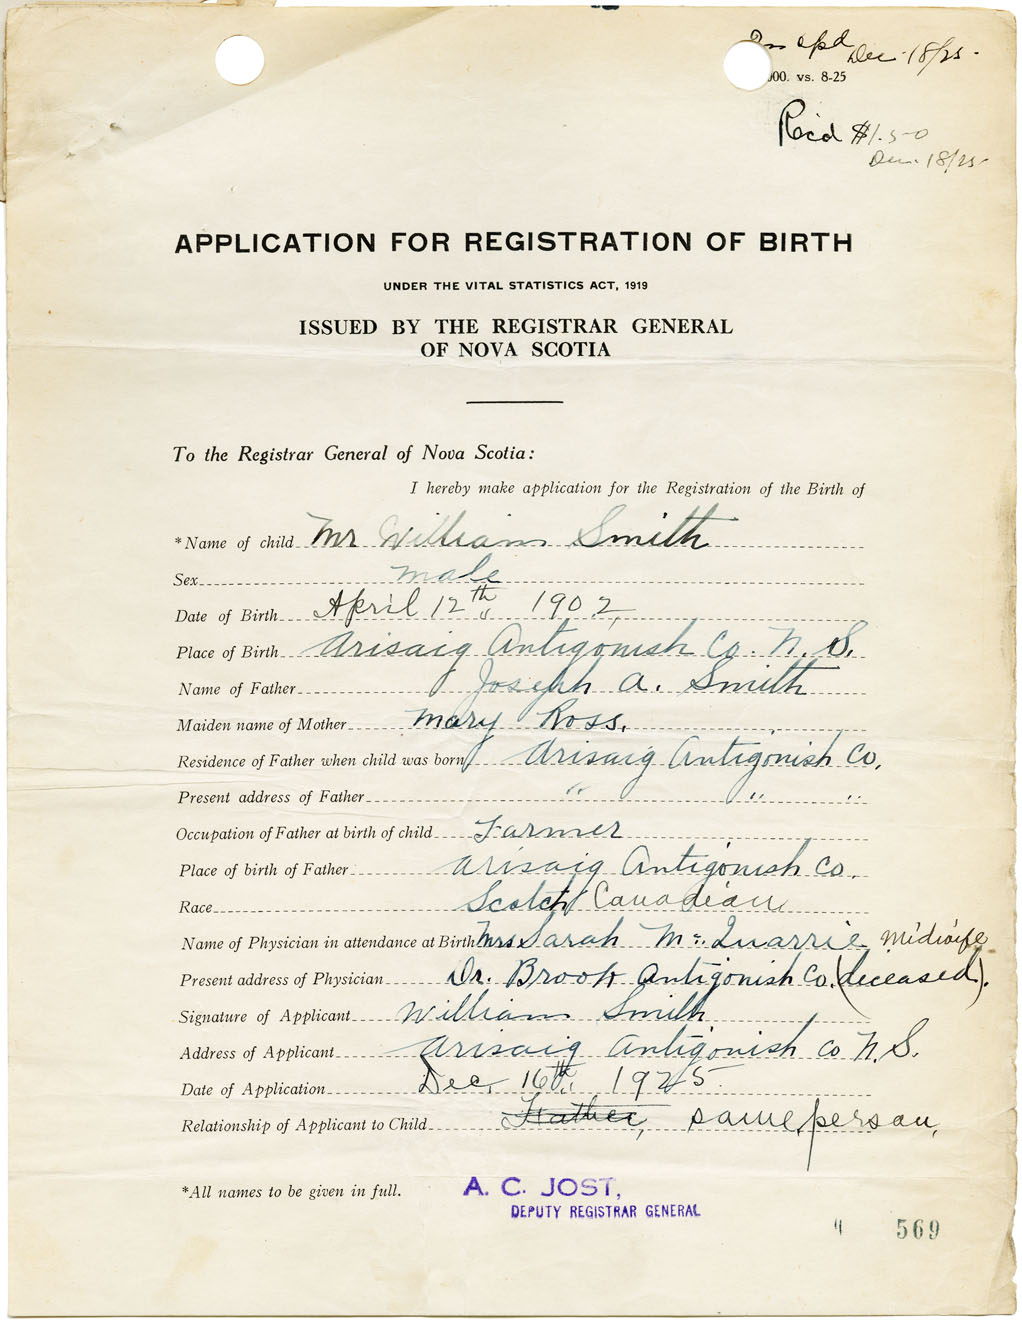 Dec. 18/25.
000. vs. 8-25
Rec'd $1.50
Dec. 18/25
APPLICATION FOR REGISTRATION OF BIRTH
UNDER THE VITAL STATISTICS ACT, 1919
ISSUED BY THE REGISTRAR GENERAL
OF NOVA SCOTIA
To the Registrar General of Nova Scotia:
I hereby make application for the Registration of the Birth of
*Name of child Mr William Smith
Sex male
Date of Birth April 12th, 1902
Place of Birth Arisaig Antigonish Co. N. S.
Name of Father Joseph A. Smith
Maiden name of Mother Mary Ross.
Residence of Father when child was born Arisaig Antigonish Co.
Present address of Father " " "
Occupation of Father at birth of child Farmer
Place of birth of Father Arisaig Antigonish Co.
Race Scotch Canadian
Name of Physician in attendance at Birth Mrs Sarah Mc Quarrie Midwife
Present address of Physician Dr. Brook Antigonish Co. (diceased).
Signature of Applicant William Smith
Address of Applicant Arisaig Antigonish Co N.S.
Date of Application Dec. 16th. 1925.
Relationship of Applicant to Child Father, same person,
*All names to be given in full.
A. C. JOST,
DEPUTY REGISTRAR GENERAL
569